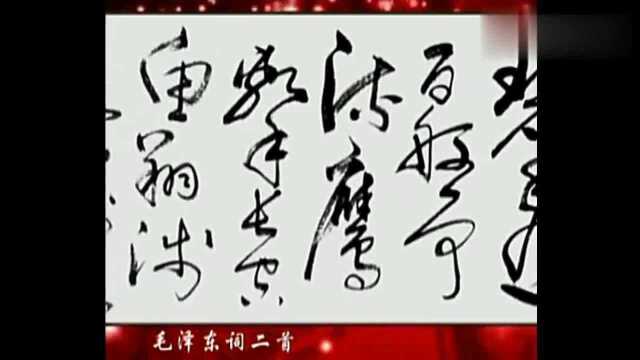 碧透
百舸争
流鹰
擊长空
鱼翔浅
毛泽东词二首